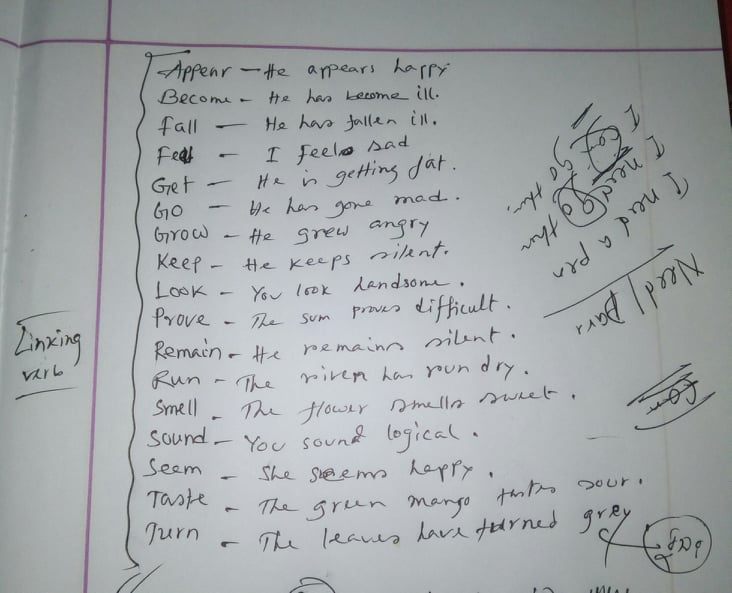 Linking
verb
Appear - He appears happy
Become - He has become ill.
Fall - He has fallen ill.
Feel - I feel sad
Get - He is getting fat.
Go - He has gone mad.
Grow - He grew angry
Keep - He keeps silent.
Look - You look handsome.
Prove - The sum proves difficult.
Remain - He remains silent.
Run - The river has run dry.
Smell - The flower smells sweet.
Sound - You sound logical.
Seem - She seems happy.
Taste - The green mango tastes sour.
Turn - The leaves have turned grey
I need a pen
Need/